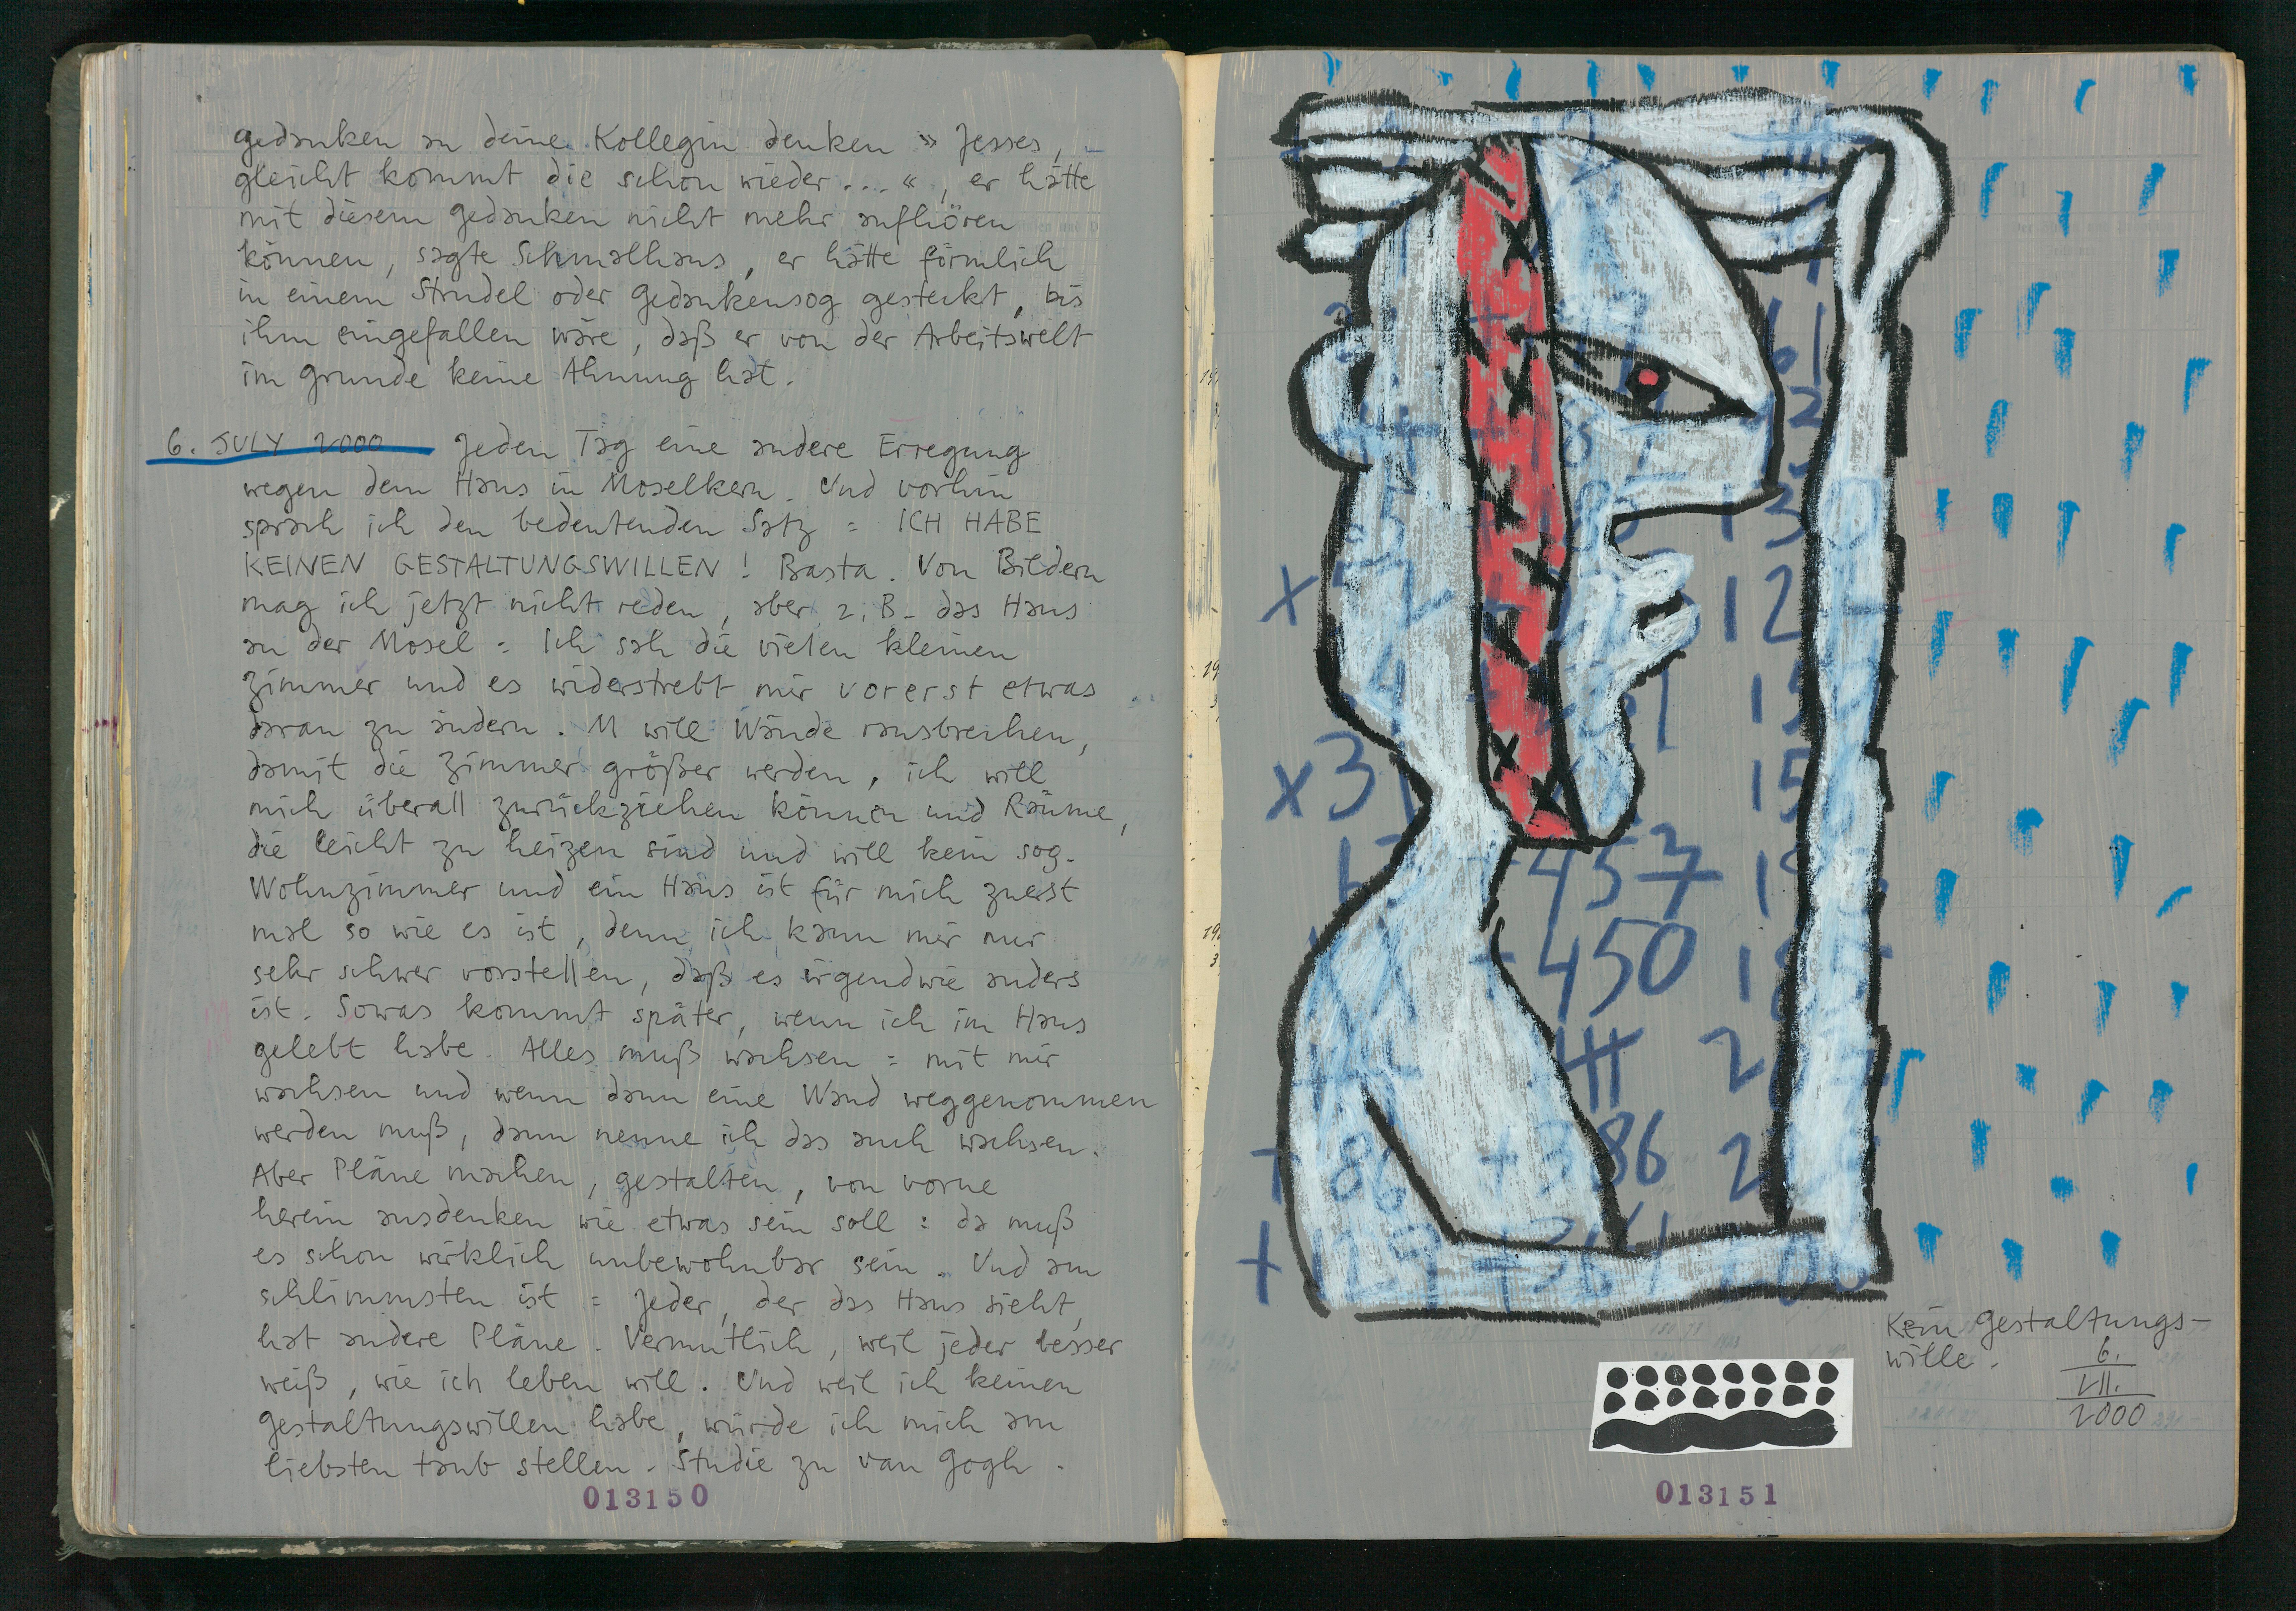 gedanken an deine Kollegin denken » Jesses,
gleicht kommt die schon wieder...«, er hätte
mit diesem gedanken nicht mehr aufhören
können, sagte Schmalhaus, er hätte förmlich
in einem Strudel oder gedankensog gesteckt, bis
ihm eingefallen wäre, daß er von der Arbeitswelt
im grunde keine Ahnung hat.
6. JULY 2000 Jeden Tag eine andere Erregung
wegen dem Haus in Moselkern. Und vorhin
sprach ich den bedeutenden Satz = ICH HABE
KEINEN GESTALTUNGSWILLEN! Basta. Von Bildern
mag ich jetzt nicht reden, aber z.B. das Haus
an der Mosel = Ich sah die vielen kleinen
Zimmer und es widerstrebt mir vorerst etwas
daran zu ändern. M will Wände rausbrechen,
damit die Zimmer größer werden, ich will
mich überall zurückziehen können und Räume,
die leicht zu heizen sind und will kein sog.
Wohnzimmer und ein Haus ist für mich zuerst
mal so wie es ist, denn ich kann mir nur
sehr schwer vorstellen, daß es irgendwie anders
ist. Sowas kommt später, wenn ich im Haus
gelebt habe. Alles muß wachsen = mit mir
wachsen und wenn dann eine Wand weggenommen
werden muß, dann nenne ich das auch wachsen.
Aber Pläne machen, gestalten, von vorne
herein ausdenken wie etwas sein soll : da muß
es schon wirklich unbewohnbar sein. Und am
schlimmsten ist = Jeder, der das Haus sieht,
hat andere Pläne. Vermutlich, weil jeder besser
weiß, wie ich leben will. Und weil ich keinen
gestaltungswillen habe, würde ich mich am
liebsten taub stellen. Studie zu van Gogh.
013150
457
450
+386
Kein gestaltungs-
wille.
6.
VII.
2000
013151